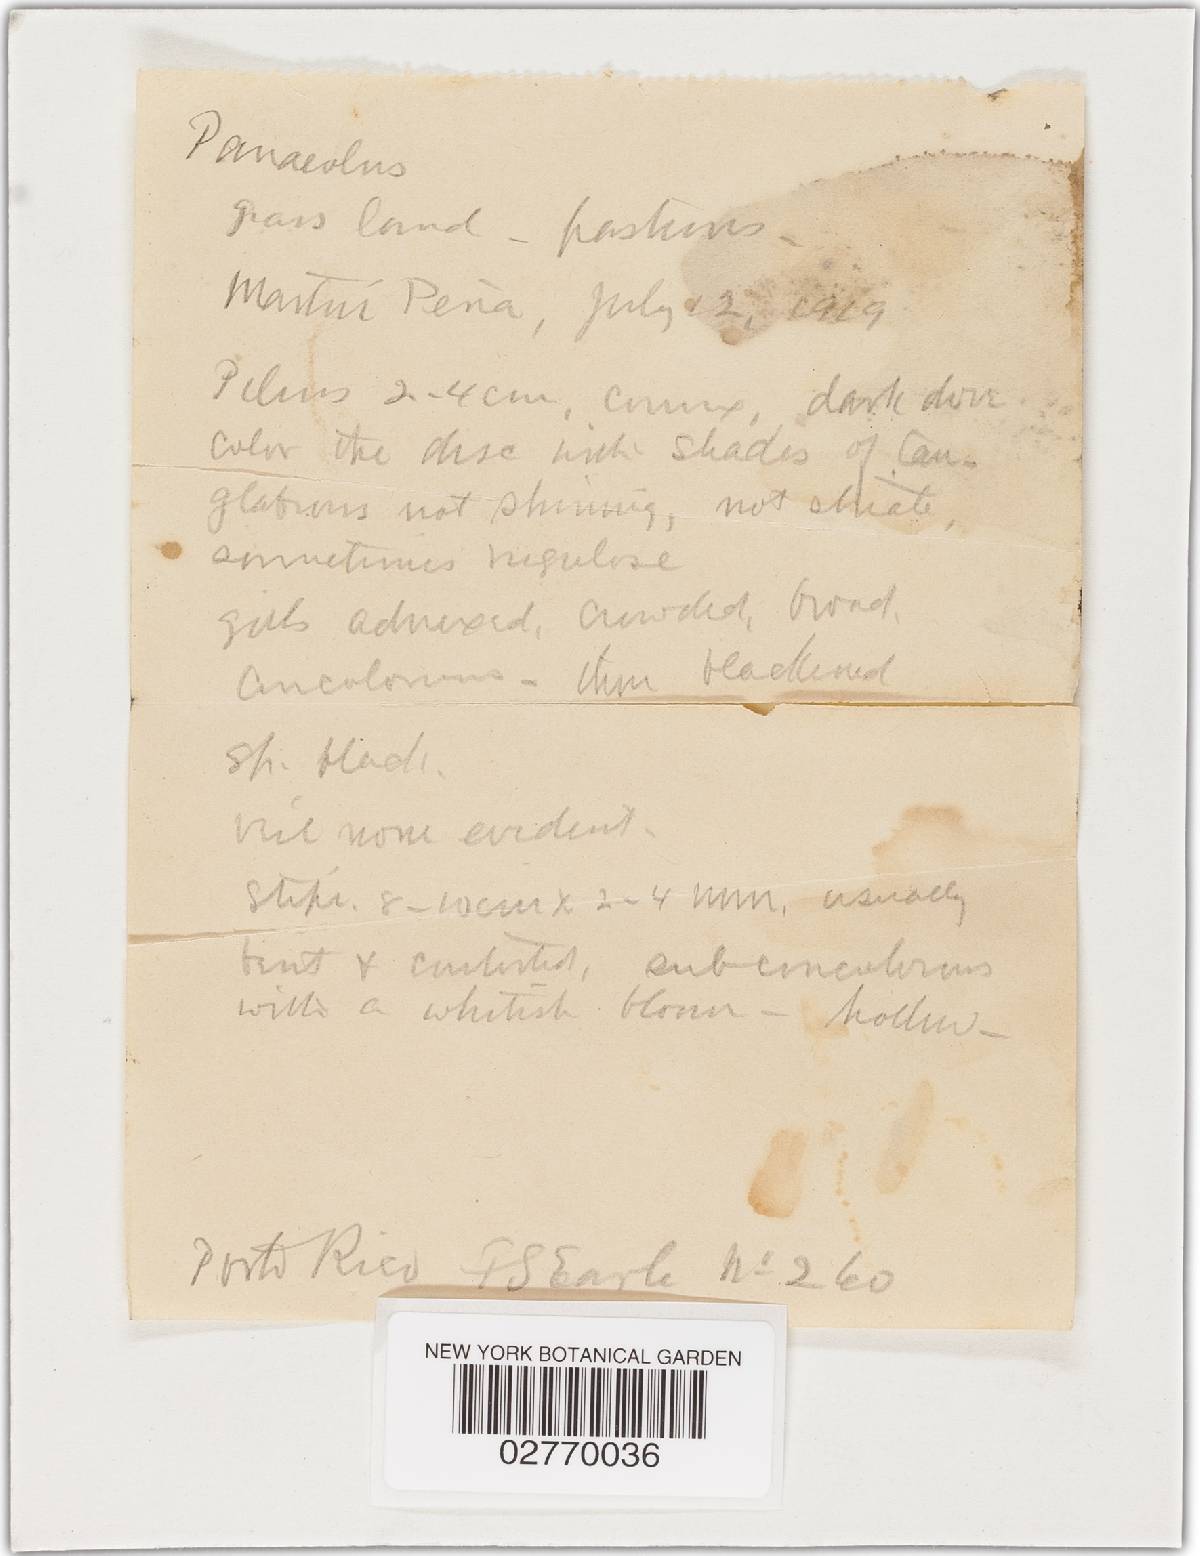 Panaeolus
grass land - pastures -
Martin Peña, July 12, 1919
Pileus 2-4 cm, convex, dark dove
color the disc with shades of tan -
glabrous not shining, not striate,
sometimes rugulose
gills adnexed, crowded, broad,
concolorous - then blackened
Sp. black.
Veil none evident -
Stipe. 8-10cm x 2-4 mm, usually
bent & contorted, sub-concolorous
with a whitish bloom - hollow -
Porto Rico FS Earle No 260
NEW YORK BOTANICAL GARDEN
02770036